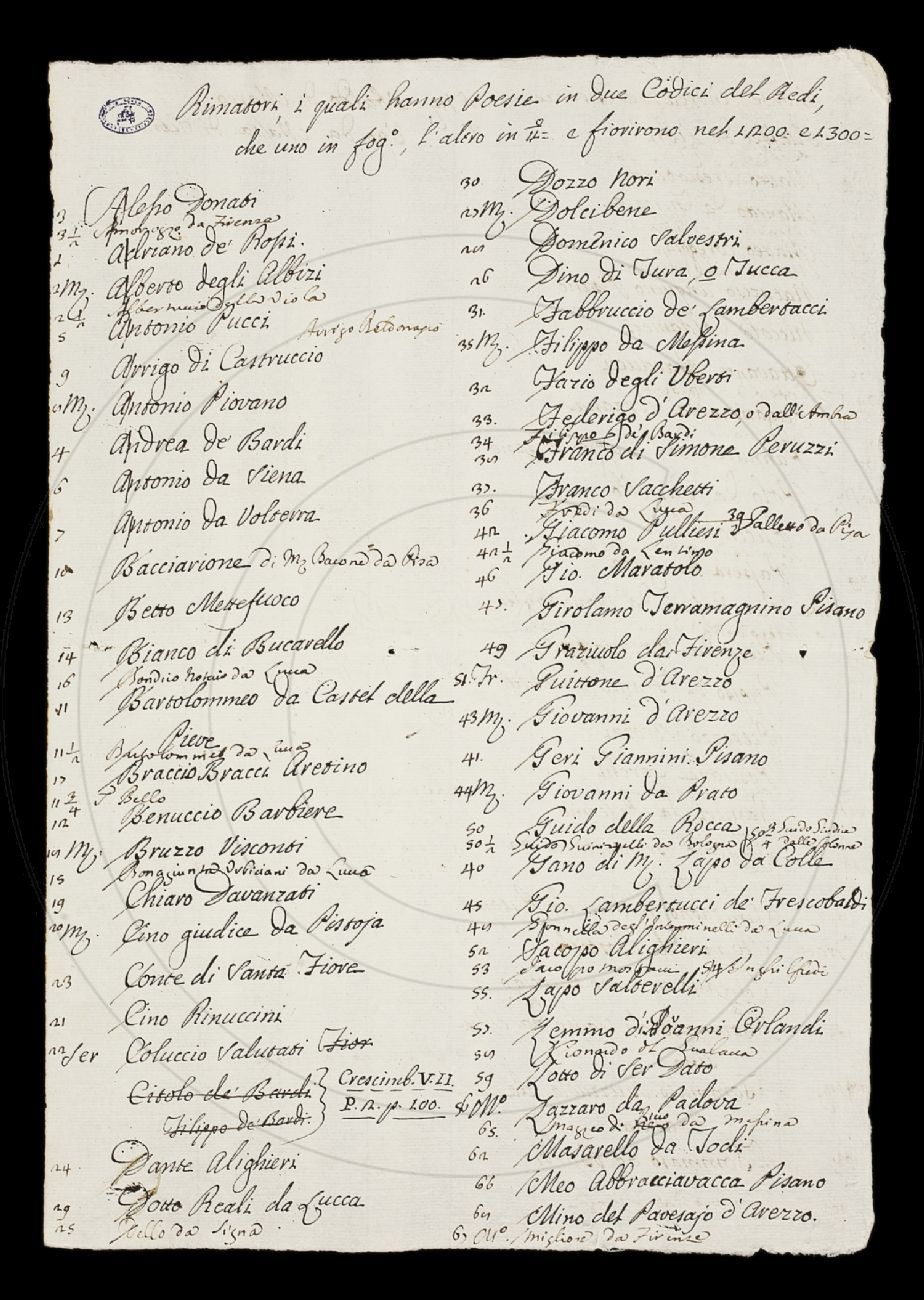 Rimatori, i quali hanno Poesie in due Codici del Redi,
che uno in fog.º, l'altro in 4º = e fiorirono nel 1200. e 1300 =
3 Alesso Donati
3 1/2 da Firenze
Adriano de' Rossi.
M. Alberto degli Albizi
2 1/2 Albertuccio della Viola
5 Antonio Pucci Arrigo Baldonasco
9 Arrigo di Castruccio
M. Antonio Piovano
4 Andrea de' Bardi
6 Antonio da Siena
7 Antonio da Volterra
10 Bacciarione di M. Bacone da Pisa
13 Betto Mettefuoco
14 Bianco di Bucarello
16 Bondico Notaio da Lucca
11 Bartolommeo da Castel della
Pieve
11 1/2 Bartolommeo da Lucca
17 Braccio Bracci Aretino
11 3/4 Bello
12 Benuccio Barbiere
15 M. Bruzzo Visconti
18 Bonagiunta Urbiciani da Lucca
19 Chiaro Davanzati
20 M. Cino giudice da Pistoja
23 Conte di Santa Fiore
21 Cino Rinuccini
22 Ser Coluccio Salutati Fior.
Citolo de' Bardi } Crescimb. V. II.
Filippo de' Bardi. P. 2. p. 100.
24. Dante Alighieri
29 Dotto Reali da Lucca
25 Dello da Signa
30 Dozzo Nori
27 M. Dolcibene
28 Domenico Salvestri
26 Dino di Tura, o Tucca
31. Fabbruccio de' Lambertacci
35 M. Filippo da Messina
32 Fazio degli Uberti
33. Federigo d'Arezzo, o dall'Ambra
34 de' Bardi
38 Franco di Simone Peruzzi
37. Franco Sacchetti
36 Fredi da Lucca
42 Giacomo Pulliesi 39 Galletto da Pisa
42 1/2 Giacomo da Lentino
46 Gio. Maratolo
47. Girolamo Terramagnino Pisano
49 Graziuolo da Firenze
51. Fr. Guittone d'Arezzo
43 M. Giovanni d'Arezzo
41. Geri Giannini Pisano
44 M. Giovanni da Prato
50 Guido della Rocca 50 3/4 Guido Giudice dalle Colonne
50 1/2 Guido Guinizzelli da Bologna
40 Gano di M. Lapo da Colle
45 Gio. Lambertucci de' Frescobaldi
48 Gonnella degl'Interminelli da Lucca
52 Jacopo Alighieri
53 Jacopo Mostacci 54 Inghilfredi
55. Lapo Salterelli
57. Lemmo di Giovanni Orlandi
58 Lionardo del Guallacca
59 Lotto di Ser Dato
M.º Lazzaro da Padova
65. Mazzeo di Ricco da Messina
62 Masarello da Todi
66 Meo Abbracciavacca Pisano
64 Mino del Pavesajo d'Arezzo.
67 M.º Migliore da Firenze